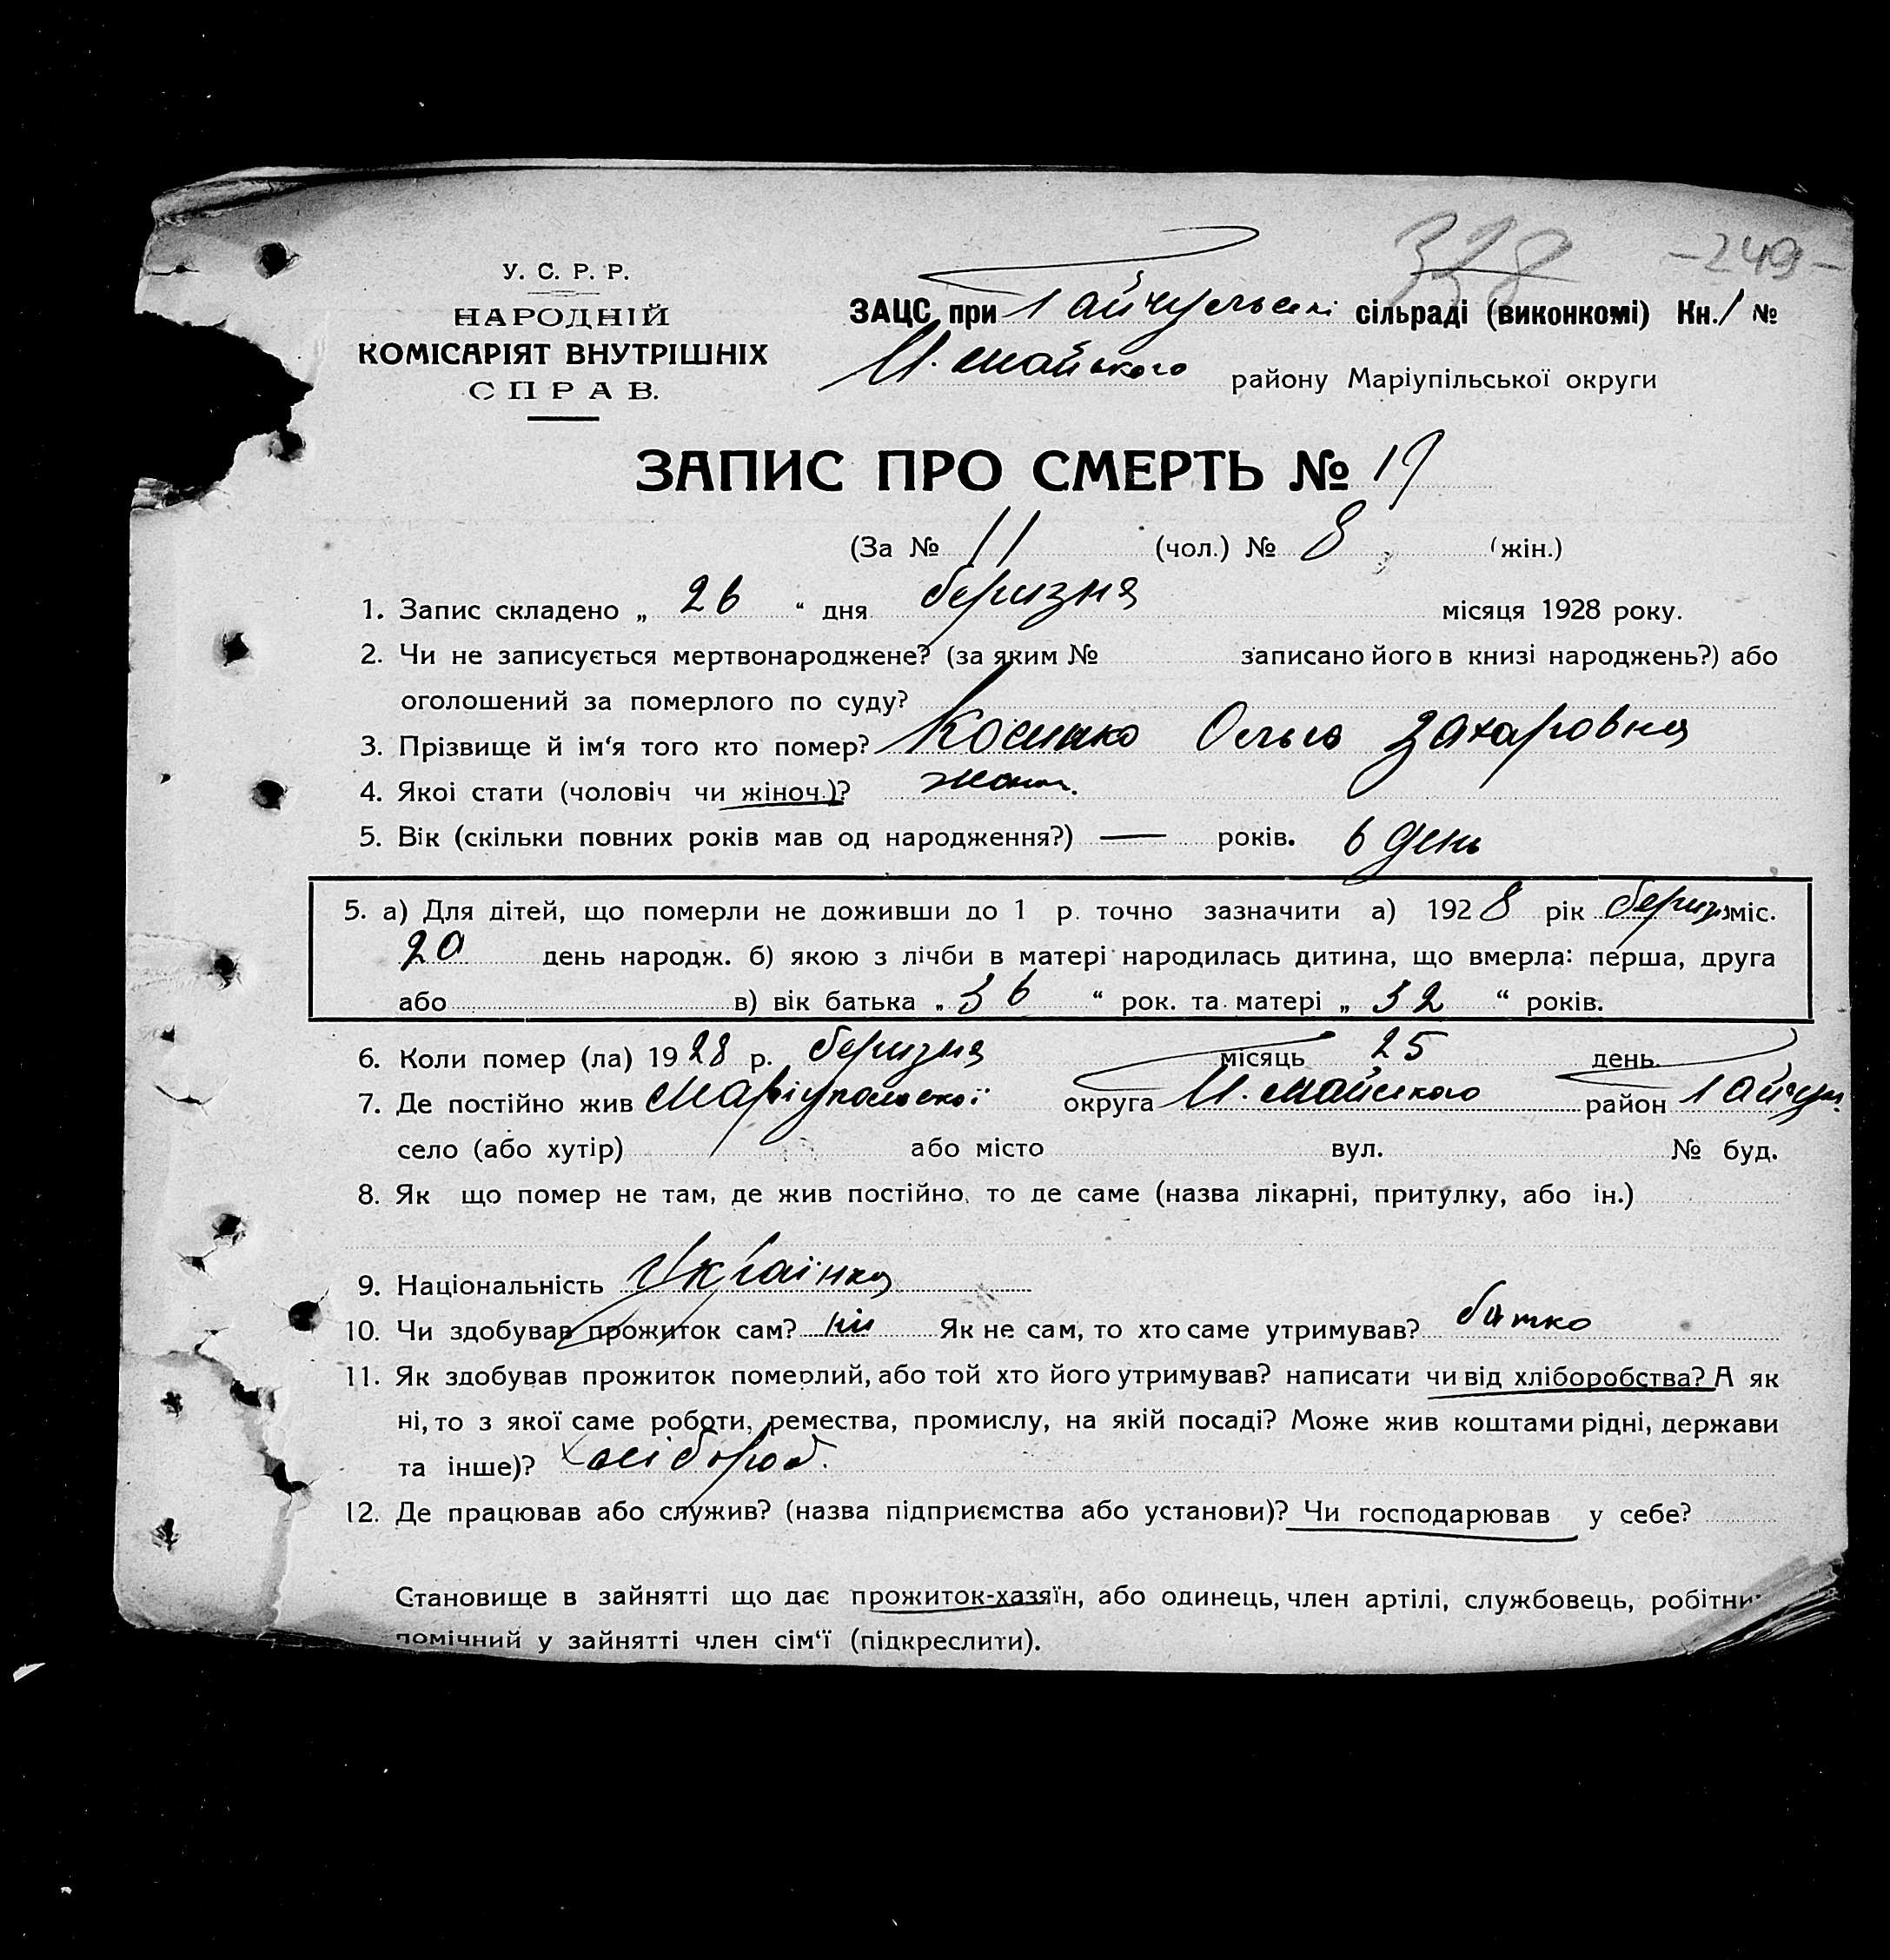 328 -249-
У. С. Р. Р.
НАРОДНІЙ
КОМІСАРІЯТ ВНУТРІШНІХ
СПРАВ.
ЗАЦС при Гайчульські сільраді (виконкомі) Кн. 1 №
И. Майського району Маріупільської округи
ЗАПИС ПРО СМЕРТЬ № 19
(За № 11 (чол.) № 8 (жін.)
1. Запис складено „ 26 “ дня беризня місяця 1928 року.
2. Чи не записується мертвонароджене? (за яким № записано його в книзі народжень?) або
оголошений за померлого по суду?
3. Прізвище й ім‘я того кто помер? Ольга Захаровна
4. Якоі стати (чоловіч чи жіноч.)?
5. Вік (скільки повних років мав од народження?) — років. 6 день
5. а) Для дітей, що померли не доживши до 1 р. точно зазначити а) 1928 рік беризня міс.
20 день народж. б) якою з лічби в матері народилась дитина, що вмерла: перша, друга
або в) вік батька „ 36 “ рок. та матері „ 32 “ років.
6. Коли помер (ла) 1928 р. беризня місяць 25 день
7. Де постійно жив Маріупольскої округа И. Майського район Гайчул.
село (або хутір) або місто вул. № буд.
8. Як що помер не там, де жив постійно, то де саме (назва лікарні, притулку, або ін.)
9. Національність Українка
10. Чи здобував прожиток сам? ні Як не сам, то хто саме утримував? батко
11. Як здобував прожиток померлий, або той хто його утримував? написати чи від хліборобства? А як
ні, то з якої саме роботи, ремества, промислу, на якій посаді? Може жив коштами рідні, держави
та інше)? Хлібороб.
12. Де працював або служив? (назва підприємства або установи)? Чи господарював у себе?
Становище в зайнятті що дає прожиток-хазяїн, або одинець, член артілі, службовець, робітни
помічний у зайнятті член сім‘ї (підкреслити).